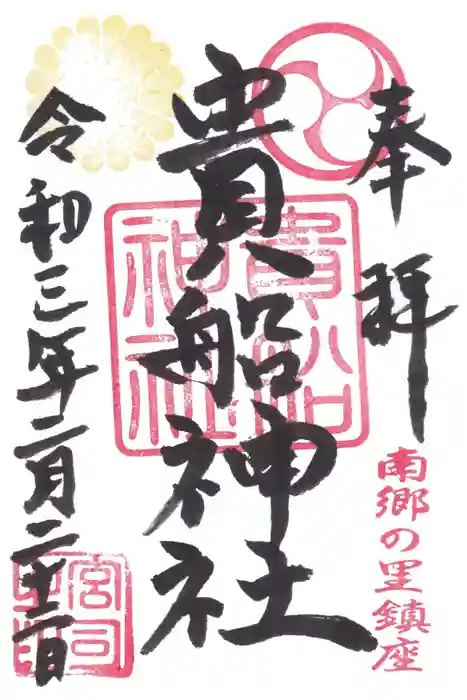 奉拝
南郷の里鎮座
貴船神社
貴船神社
令和三年二月二十三日
宮司之印